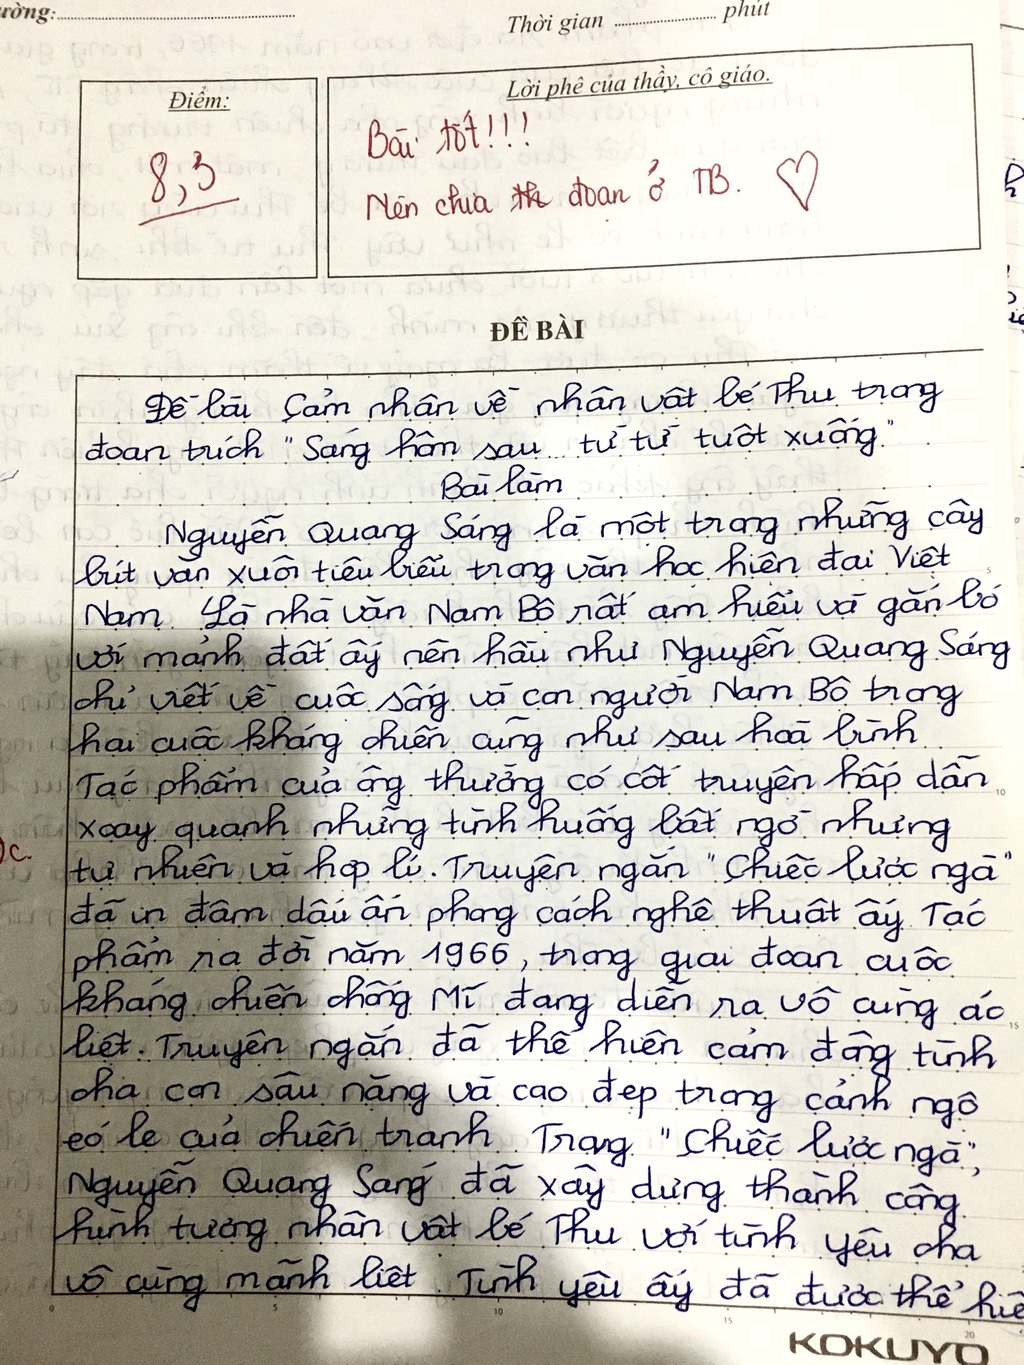 ường:
Thời gian phút
Điểm:
8,3
Lời phê của thầy, cô giáo.
Bài tốt!!!
Nên chia đoạn ở TB. ♡
ĐỀ BÀI
Đề bài Cảm nhận về nhân vật bé Thu trong
đoạn trích "Sáng hôm sau ... từ từ tuột xuống."
Bài làm
Nguyễn Quang Sáng là một trong những cây
bút văn xuôi tiêu biểu trong văn học hiện đại Việt
Nam. Là nhà văn Nam Bộ rất am hiểu và gắn bó
với mảnh đất ấy nên hầu như Nguyễn Quang Sáng
chỉ viết về cuộc sống và con người Nam Bộ trong
hai cuộc kháng chiến cũng như sau hoà bình
Tác phẩm của ông thường có cốt truyện hấp dẫn
xoay quanh những tình huống bất ngờ nhưng
tự nhiên và hợp lí. Truyện ngắn "Chiếc lược ngà"
đã in đậm dấu ấn phong cách nghệ thuật ấy Tác
phẩm ra đời năm 1966, trong giai đoạn cuộc
kháng chiến chống Mĩ đang diễn ra vô cùng ác
liệt. Truyện ngắn đã thể hiện cảm động tình
cha con sâu nặng và cao đẹp trong cảnh ngộ
éo le của chiến tranh Trong "Chiếc lược ngà",
Nguyễn Quang Sáng đã xây dựng thành công
hình tượng nhân vật bé Thu với tình yêu cha
vô cùng mãnh liệt Tình yêu ấy đã được thể hiệ
5
10
15
0 5 10 15 20
KOKUYO